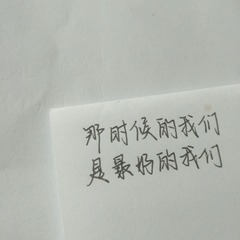 那时候的我们
是最好的我们